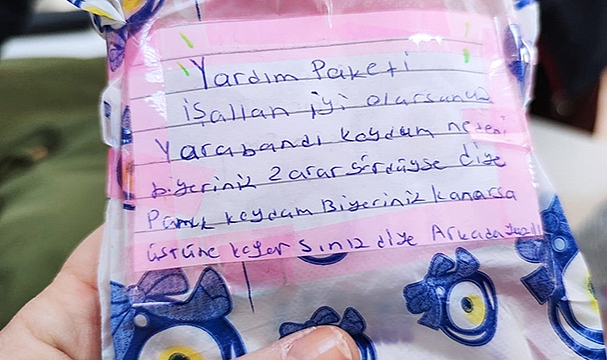 Yardım Paketi
işallah iyi olarsunuz
Yarabandı koydum nedeni
biyeriniz zarar gördüyse diye
Pamuk koydum Biyeriniz kanarsa
üstüne koyarsınız diye Arkadaşınız